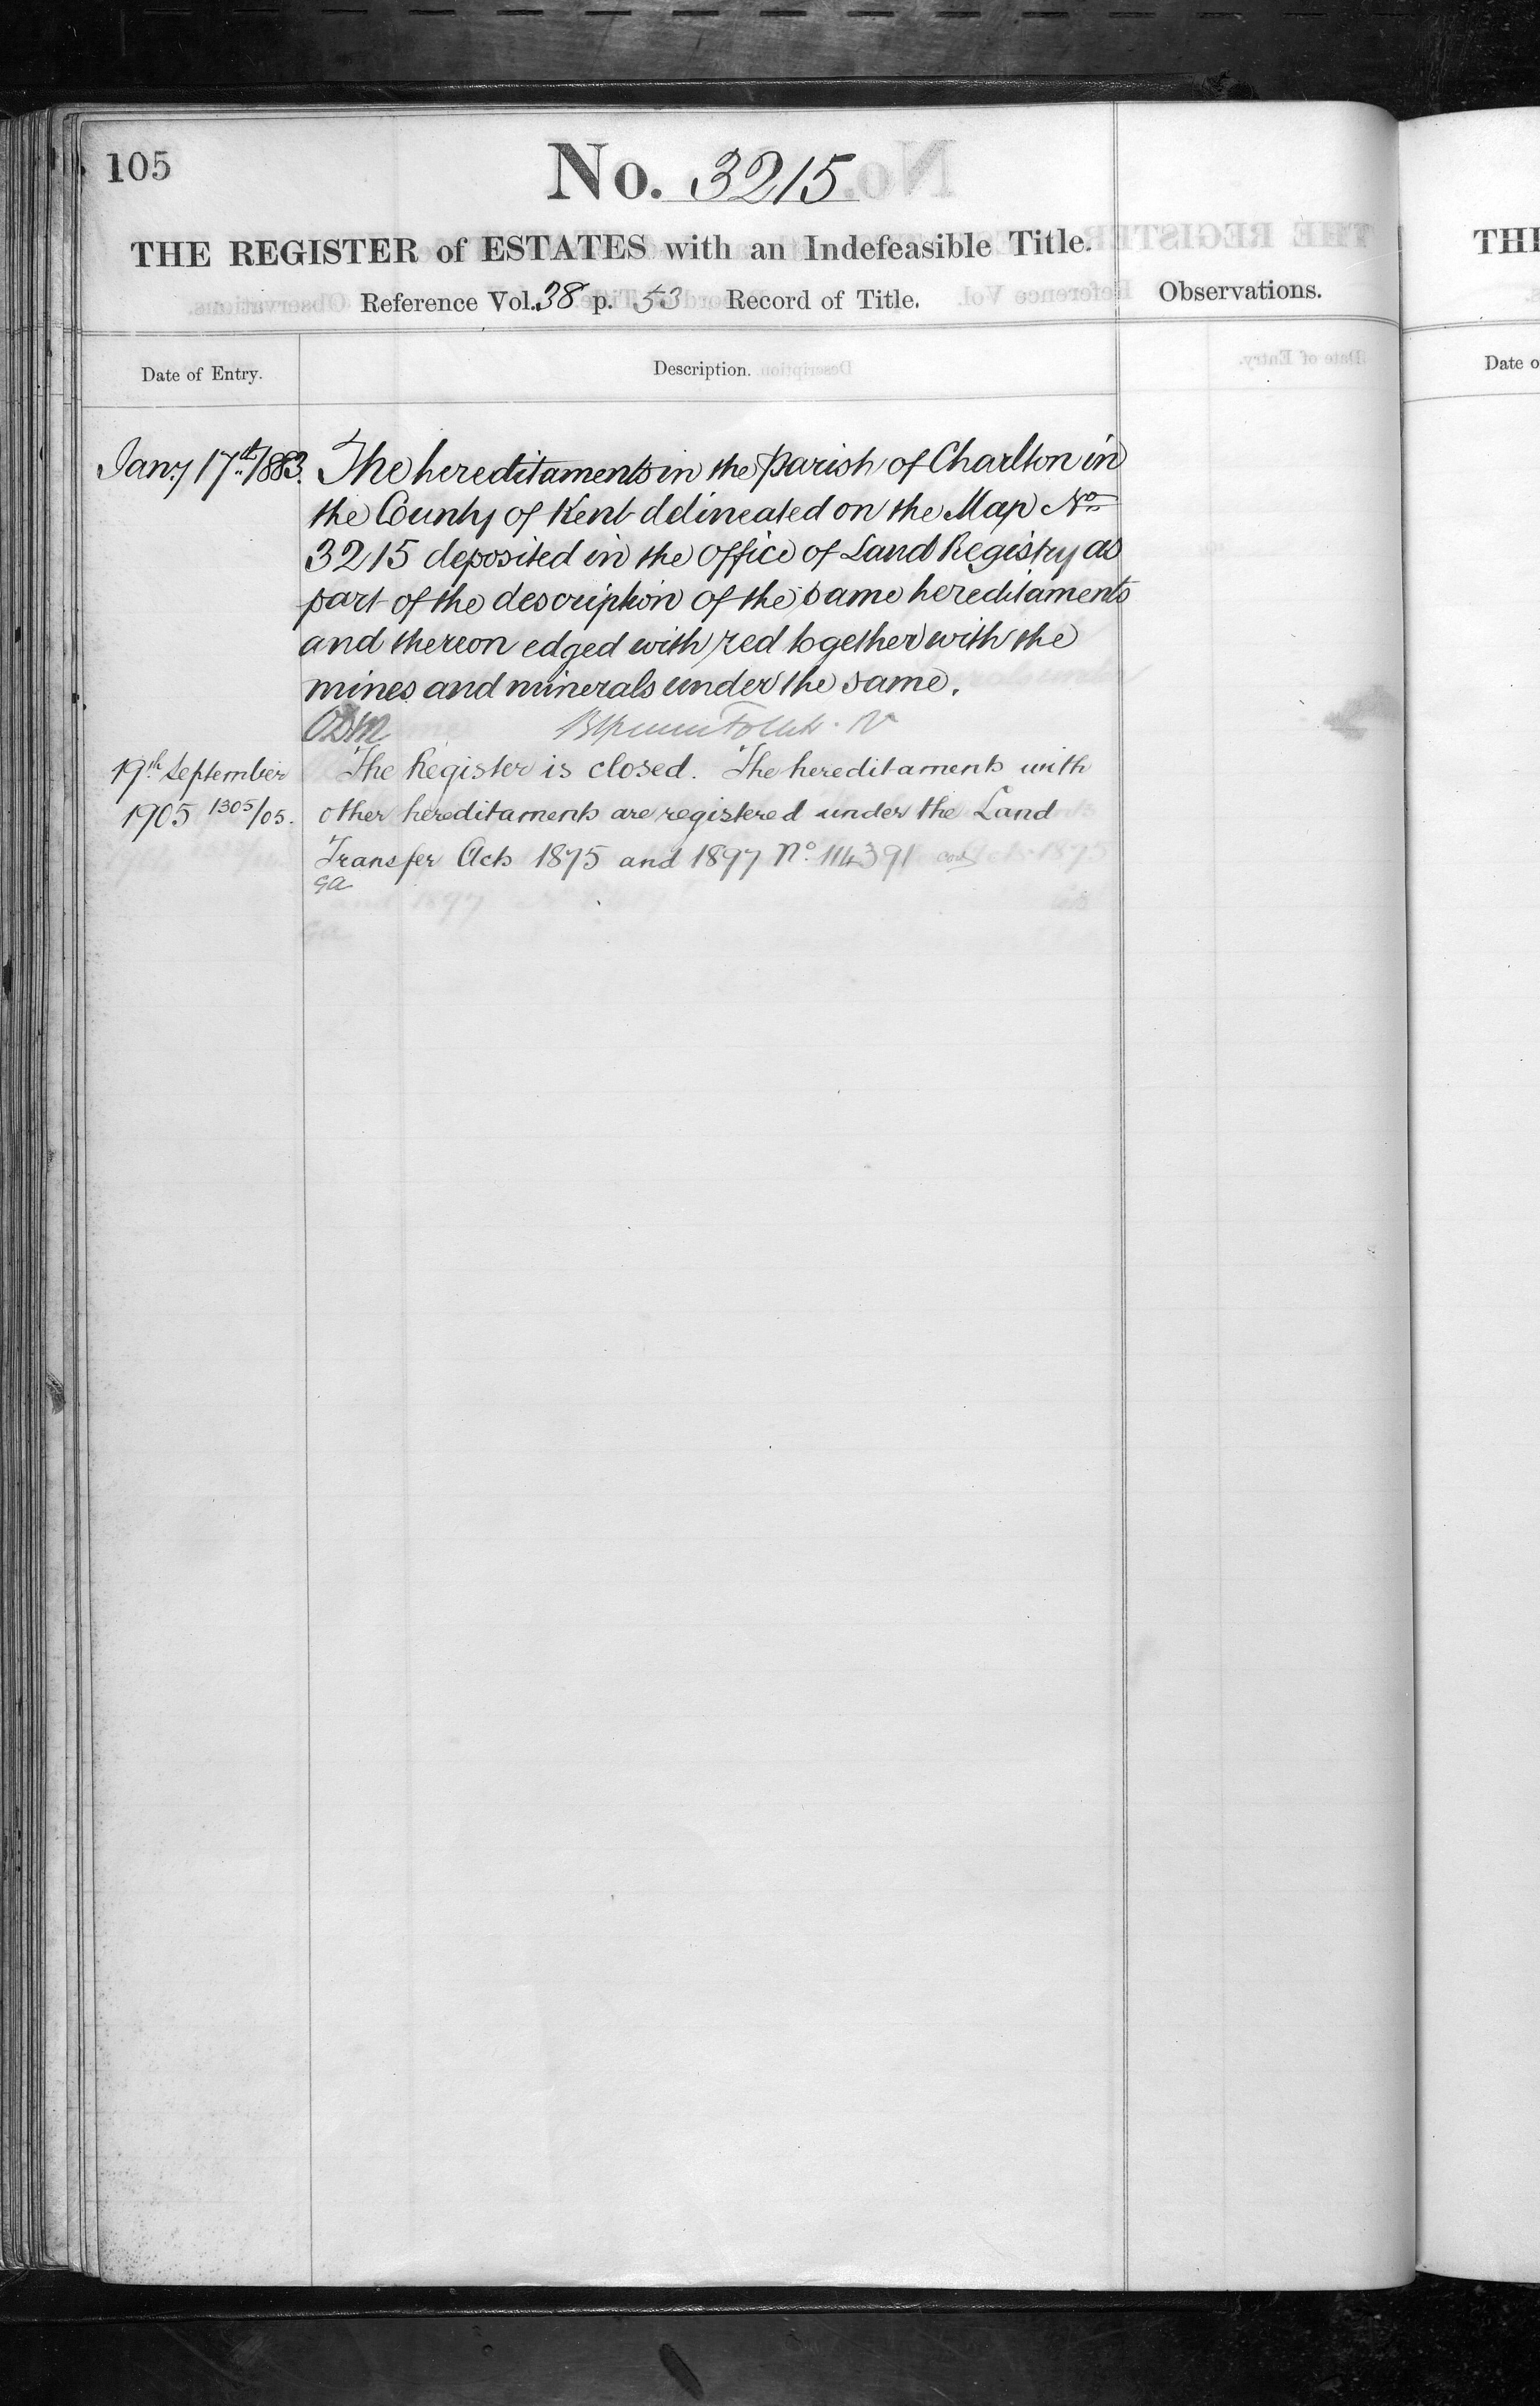 105
No. 3215
THE REGISTER of ESTATES with an Indefeasible Title.
Reference Vol. 38 p. 53 Record of Title.
Observations.
Date of Entry.
Description.
Jany 17th 1883. The hereditaments in the Parish of Charlton in
the County of Kent delineated on the Map No
3215 deposited in the office of Land Registry as
part of the description of the same hereditaments
and thereon edged with red together with the
mines and minerals under the same.
19th September The Register is closed. The hereditaments with
1905 1305/05. other hereditaments are registered under the Land
Transfer Acts 1875 and 1897 No. 114391
GA
THE
Date o